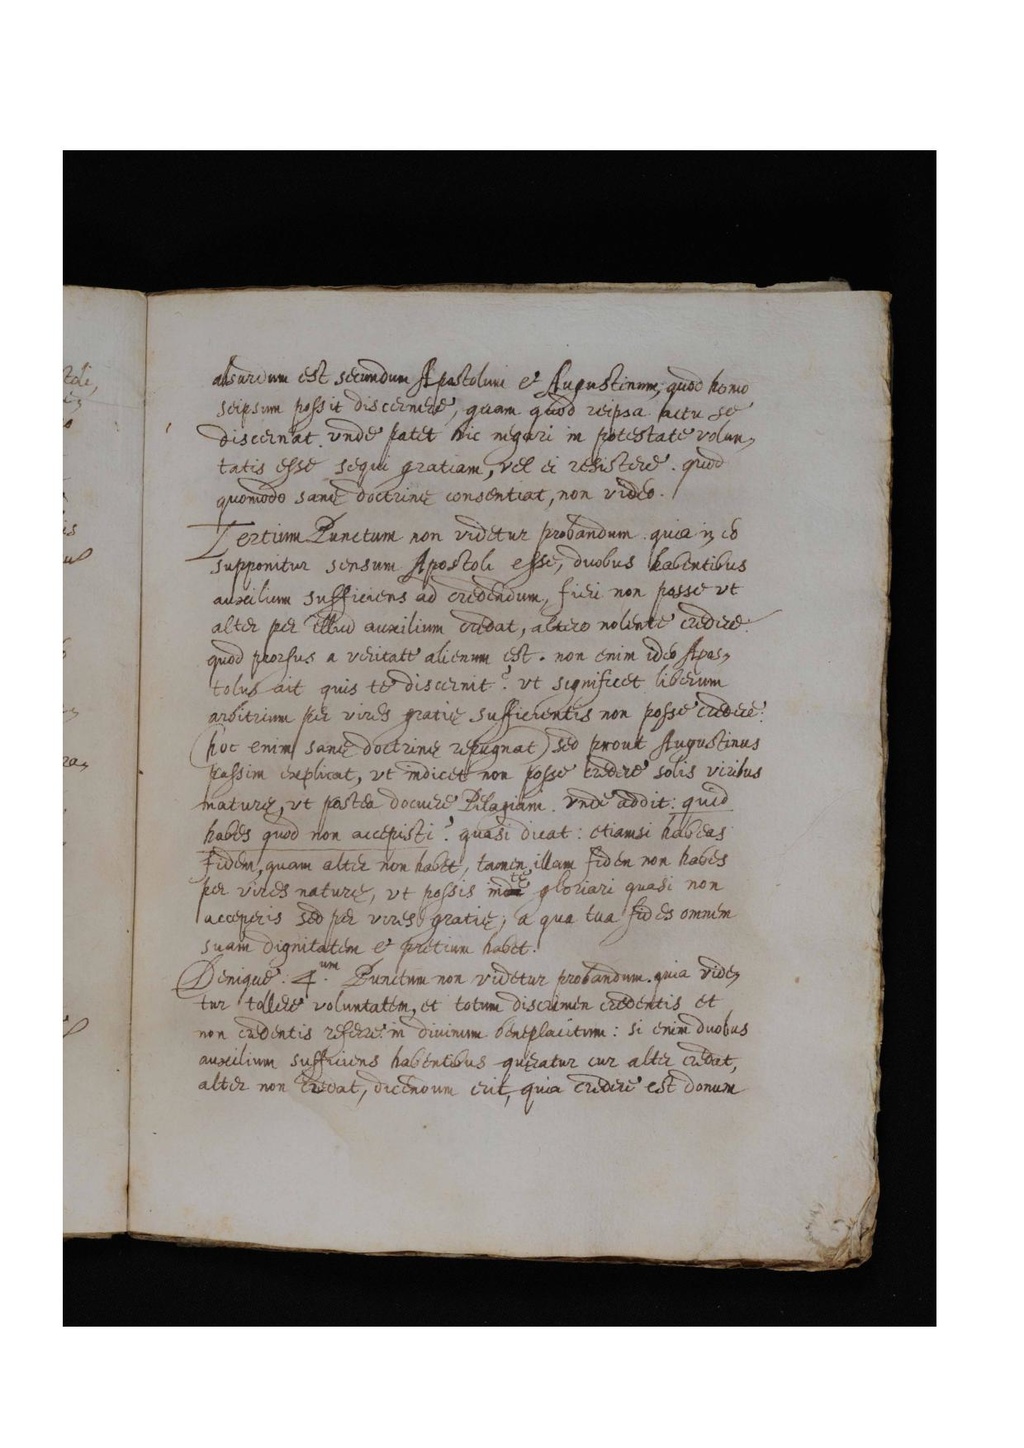 absurdum est secundum Apostolum et Augustinum, quod homo
seipsum possit discernere, quam quod reipsa actu se
discernat. vnde patet hic negari in potestate volun,
tatis esse sequi gratiam, vel ei resistere. quod
quomodo sanę doctrinę consentiat, non video.
Tertium Punctum non videtur probandum. quia in eo
supponitur sensum Apostoli esse, duobus habentibus
auxilium sufficiens ad credendum, fieri non posse vt
alter per illud auxilium credat, altero nolente credere.
quod prorsus a veritate alienum est. non enim ideò Apos,
tolus ait quis te discernit? vt significet liberum
arbitrium per vires gratię sufficientis non posse credere:
(hoc enim sanę doctrinę repugnat) sed prout Augustinus
passim explicat, vt indicet non posse credere solis viribus
naturę, vt postea docuere Pelagiani. vnde addit: quid
habes quod non accepisti? quasi dicat: etiamsi habeas
fidem, quam alter non habet, tamen illam fidem non habes
per vires naturę, vt possis te gloriari quasi non
acceperis sed per vires gratię; a qua tua fides omnem
suam dignitatem et pretium habet.
Denique: 4.um Punctum non videtur probandum. quia vide,
tur tollere voluntatem, et totum discrimen credentis et
non credentis referre in divinum beneplacitum: si enim duobus
auxilium sufficiens habentibus quęratur cur alter credat,
alter non credat, dicendum erit, quia credere est donum